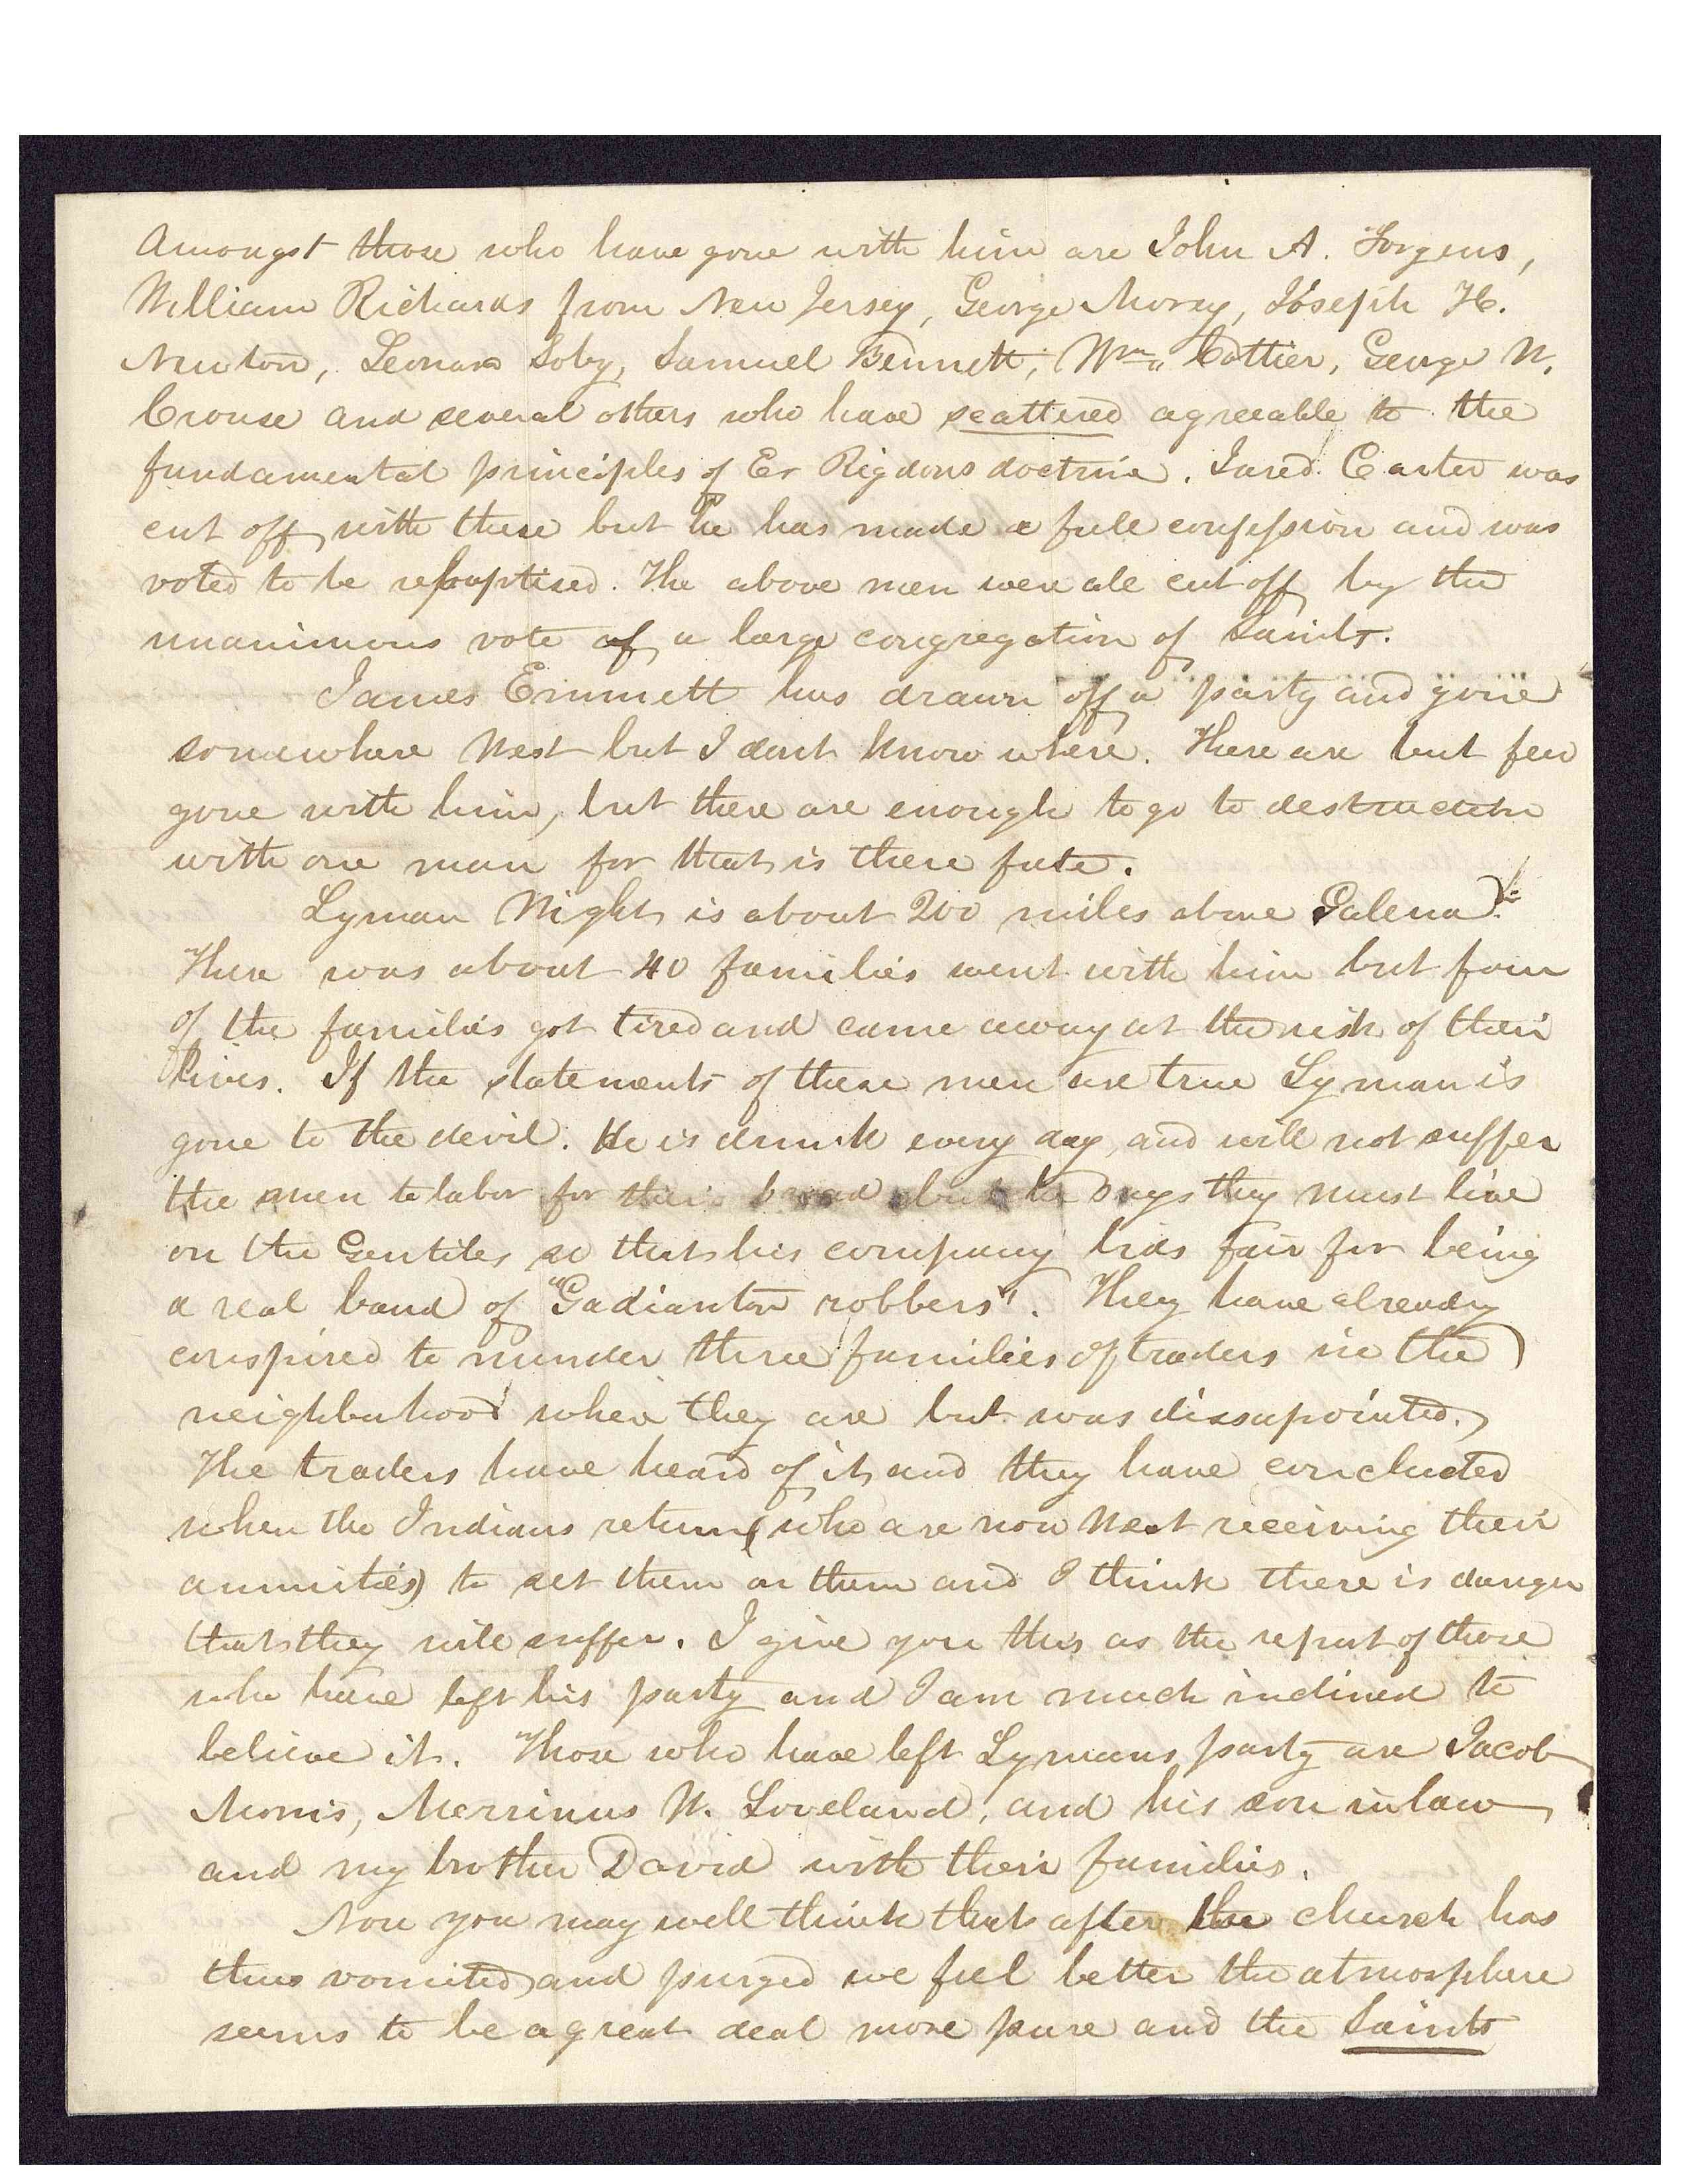 Amongst those who have gone with him are John A. Forgeus,
William Richards from New Jersey, George Morey, Joseph H.
Newton, Leonard Soby, Samuel Bennett, Wm. Cottier, George W.
Crouse and several others who have scattered agreeable to the
fundamental principles of Er Rigdons doctrine. Jared Carter was
cut off with these but he has made a full confession and was
voted to be rebaptised. The above men were all cut off by the
unanimous vote of a large congregation of Saints.
James Emmett has drawn off a party and gone
somewhere West but I dont know where. There are but few
gone with him, but there are enough to go to destruction
with one man for that is there fate.
Lyman Wight is about 200 miles above Galena.
There was about 40 families went with him but four
of the families got tired and came away at the risk of their
lives. If the statements of these men are true Lyman is
gone to the devil. He is drunk every day, and will not suffer
the men to labor for their bread but he says they must live
on the Gentiles so that his company bids fair for being
a real band of "Gadianton robbers". They have already
conspired to murder three families of traders in the
neighborhood where they are but was dissapointed.
The traders have heard of it and they have concluded
when the Indians return (who are now West receiving their
annuities) to set them on them and I think there is danger
that they will suffer. I give you this as the report of those
who have left his party and I am much inclined to
believe it. Those who have left Lymans party are Jacob
Morris, Merrinus W. Loveland, and his son in law
and my brother David with their families.
Now you may well think that after the church has
thus vomited and purged we feel better the atmosphere
seems to be a great deal more pure and the Saints